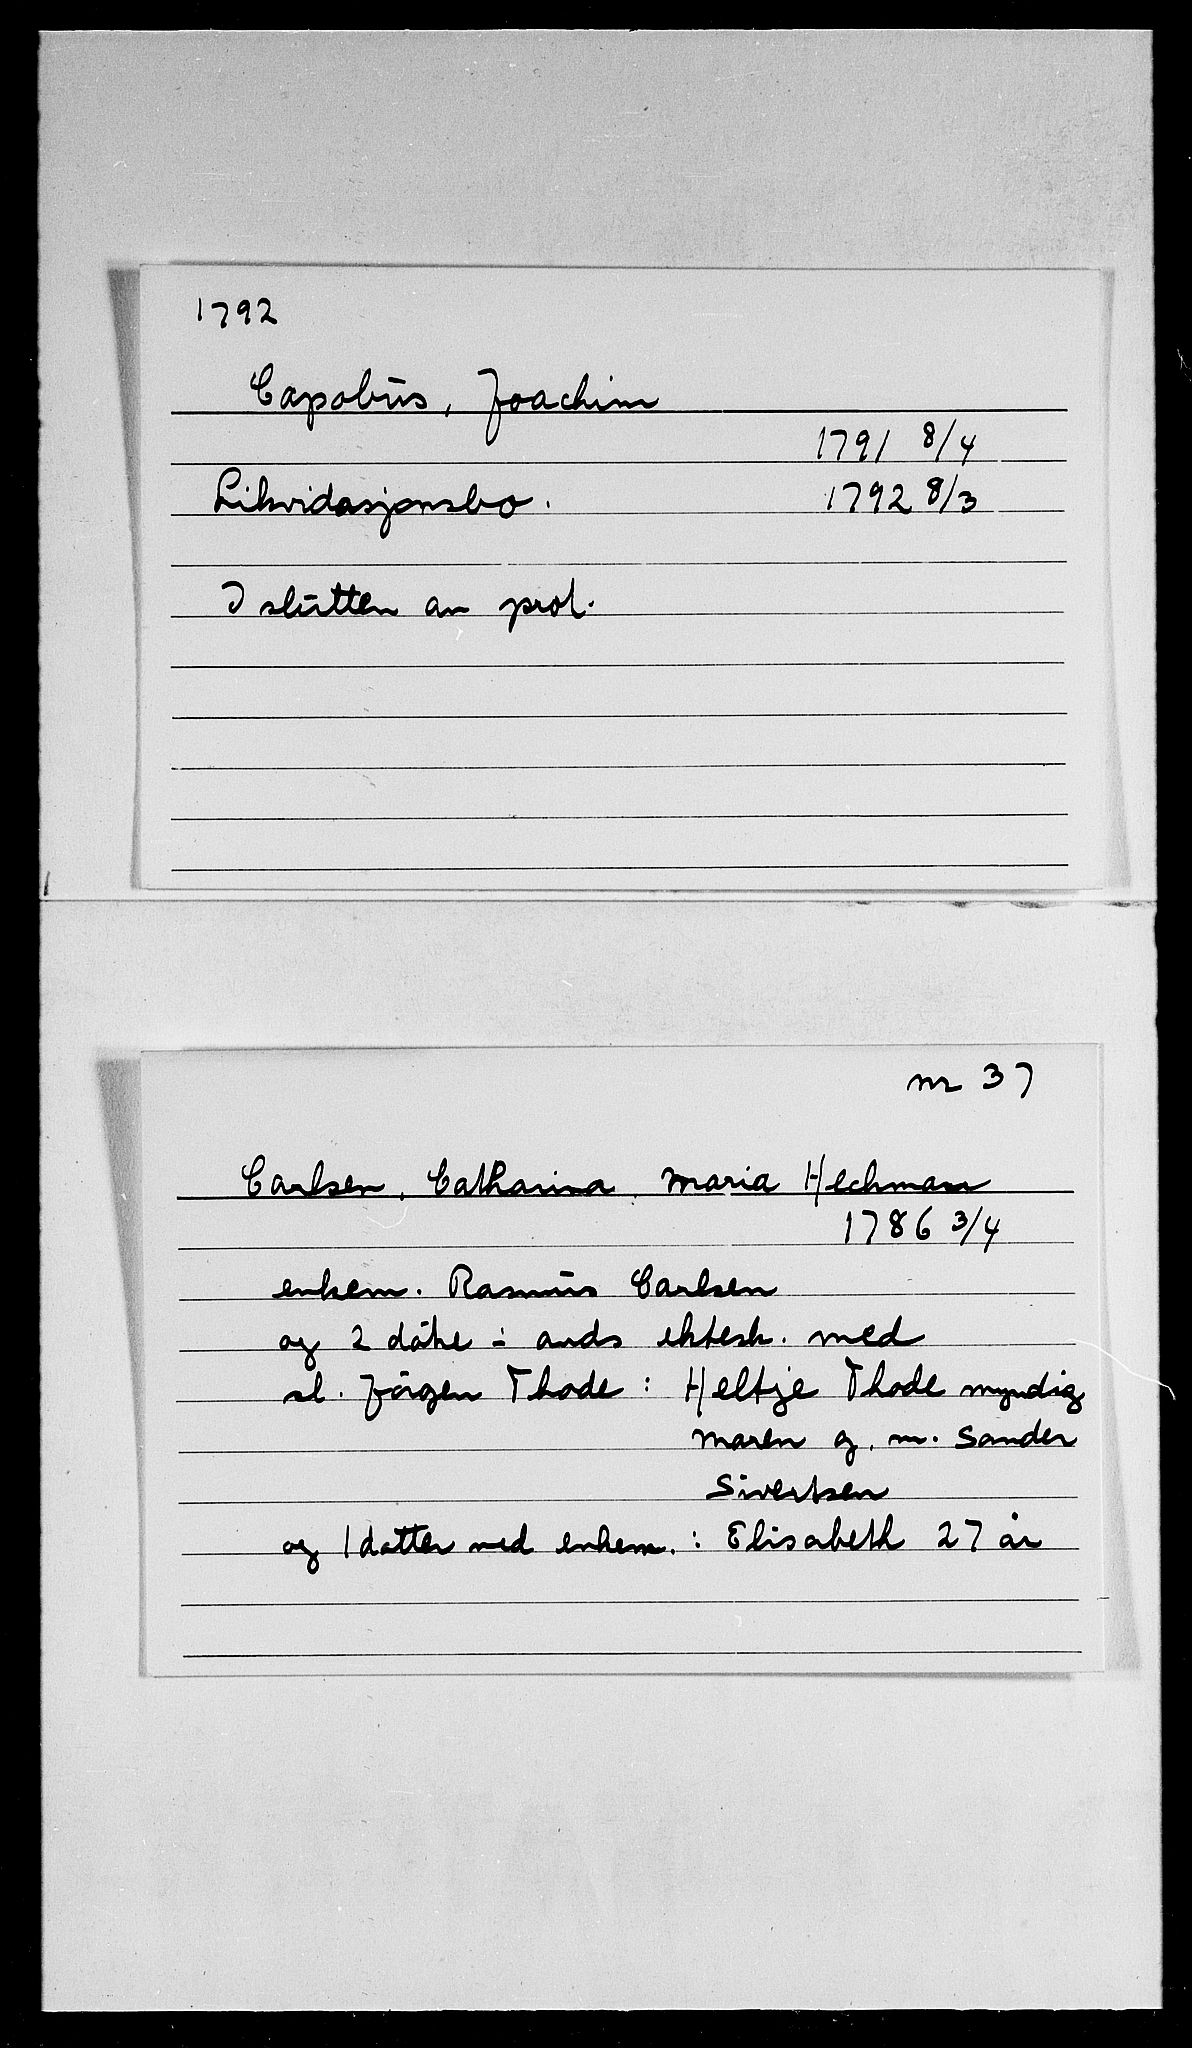 1792
Capobus, Joachim
1791 8/4
Likvidasjonsbo. 1792 8/3
I slutten av prot.
nr 37
Carlsen, Catharina Maria Hechman
1786 3/4
enkem. Rasmus Carlsen
og 2 døtre i ektesk. med
sl. Jørgen Thode: Heltje Thode myndig
Maren g. m. Sander
Sivertsen
og 1 datter med enkem.: Elisabeth 27 år